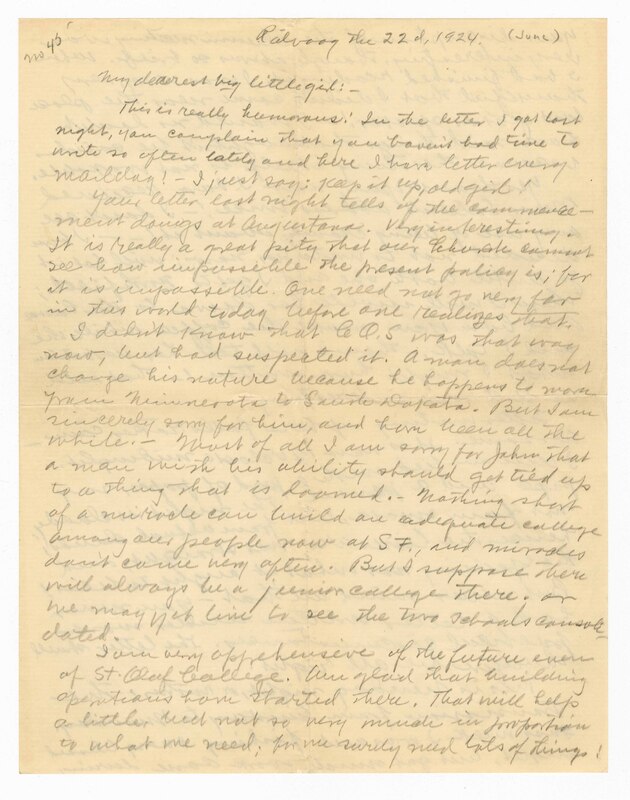 no 45
Rölvaag the 22d, 1924. (June)
My dearest big little girl:-
This is really humorous! In the letter I got last
night, you complain that you haven't had time to
write so often lately and here I have letter every
mailday! - I just say: keep it up, old girl!
Your letter last night tells of the commence-
ment doings at Augustana. Very interesting.
It is really a great pity that our Church cannot
see how impossible the present policy is; for
it is impossible. One need not go very far
in this world today before one realizes that.
I didn't know that C.O.S was that way
now, but had suspected it. A man does not
change his nature because he happens to move
from Minnesota to South Dakota. But I am
sincerely sorry for him, and have been all the
while. - Most of all I am sorry for John that
a man with his ability should get tied up
to a thing that is doomed. - Nothing short
of a miracle can build an adequate college
among our people now at S F., and miracles
don't come very often. But I suppose there
will always be a junior college there. or
we may yet live to see the two schools consoli-
dated.
I am very apprehensive of the future even
of St. Olaf College. Am glad that building
operations have started there. That will help
a little but not so very much in proportion
to what we need; for we surely need lots of things!